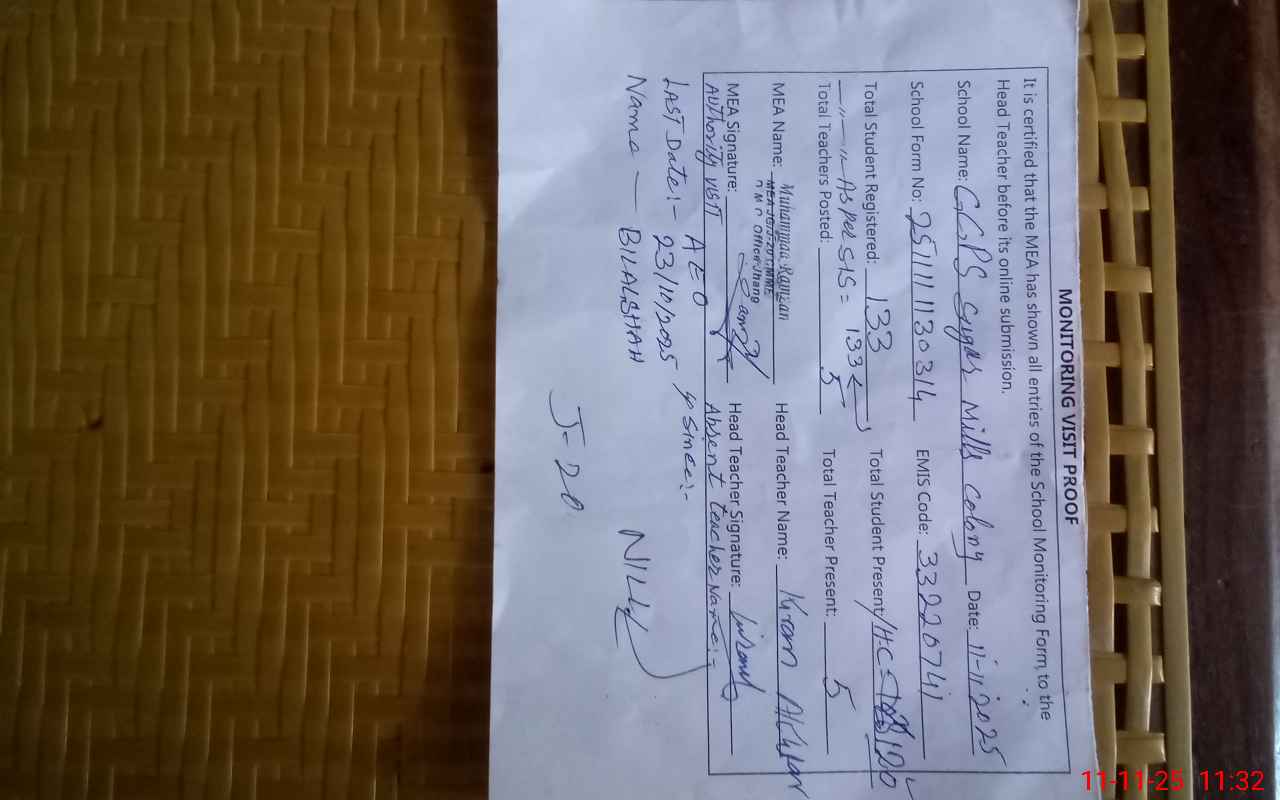 MONITORING VISIT PROOF
It is certified that the MEA has shown all entries of the School Monitoring Form, to the
Head Teacher before its online submission.
School Name: GGPS Sugar Mills Colony Date: 11-11-2025
School Form No: 2511111130314 EMIS Code: 33220741
Total Student Registered: 133 Total Student Present/H.C 120
—"—"— As Per SIS = 133
Total Teachers Posted: 5 Total Teacher Present: 5
MEA Name: Muhammad Ramzan Head Teacher Name: Kiran Akhtar
MEA J
Office Jhang
MEA Signature: Head Teacher Signature:
Authority visit AEO Absent teacher Name:-
LAST Date:- 23/10/2025 Since:-
Name — BILAL SHAH NILL
J-20
11-11-25 11:32